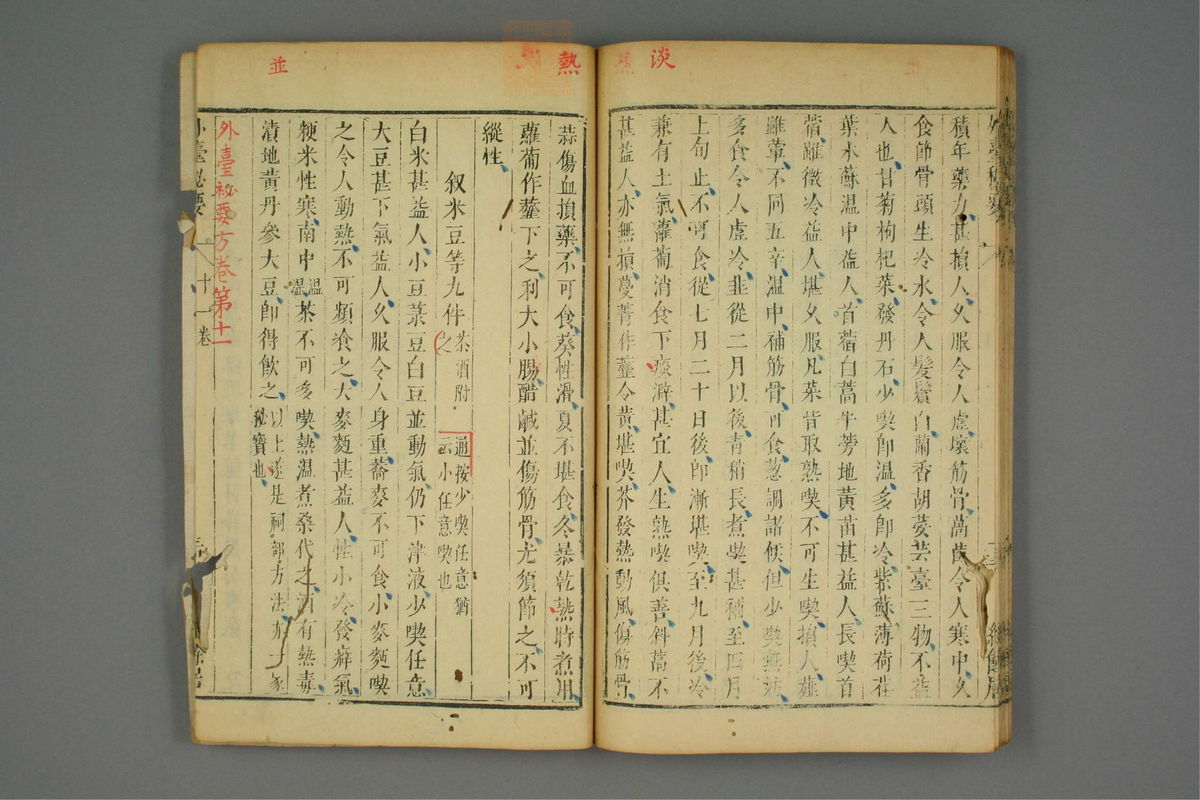 淡
積年藥力甚損人久服令人虛壞筋骨萵苣令人寒中久
食節骨頭生冷水令人髪鬢白蘭香胡荽芸臺三物不益
人也甘菊枸杞葉發丹石少喫即温多即冷紫蘇薄荷荏
葉水蘇温中益人首蓿白蒿牛蒡地黄苗甚益人長喫首
蓿雖微冷益人堪久服凡菜皆取熟喫不可生喫損人薤
雖葷不同五辛温中補筋骨可食葱調諸候但少喫無妨
多食令人虛冷韭從二月以後青稍長煮喫甚補至四月
上旬止不可食從七月二十日後即漸堪喫至九月後冷
兼有土氣蘿蔔消食下痰澼甚宜人生熟喫俱善斜蒿不
甚益人亦無損蔓菁作虀令黄堪喫芥發熱動風傷筋骨
熱
蒜傷血損藥不可食葵性滑夏不堪食冬暴乾熟時煮用
蘿蔔作虀下之利大小腸醋鹹並傷筋骨尤須節之不可
縱性
叙米豆等九件茶酒附之通按少喫任意猶云小任意喫也
並
白米甚益人小豆菉豆白豆並動氣仍下津液少喫任意
大豆甚下氣益人久服令人身重蕎麥不可食小麥麵喫
之令人動熱不可頻飡之大麥麵甚益人性小冷發癖氣
粳米性寒南中温温茶不可多喫熱温煮桑代之酒有熱毒
漬地黄丹參大豆即得飲之以上遂是祠部方法亦一家秘寶也
外臺祕要方卷第十一
外臺秘要 十一卷